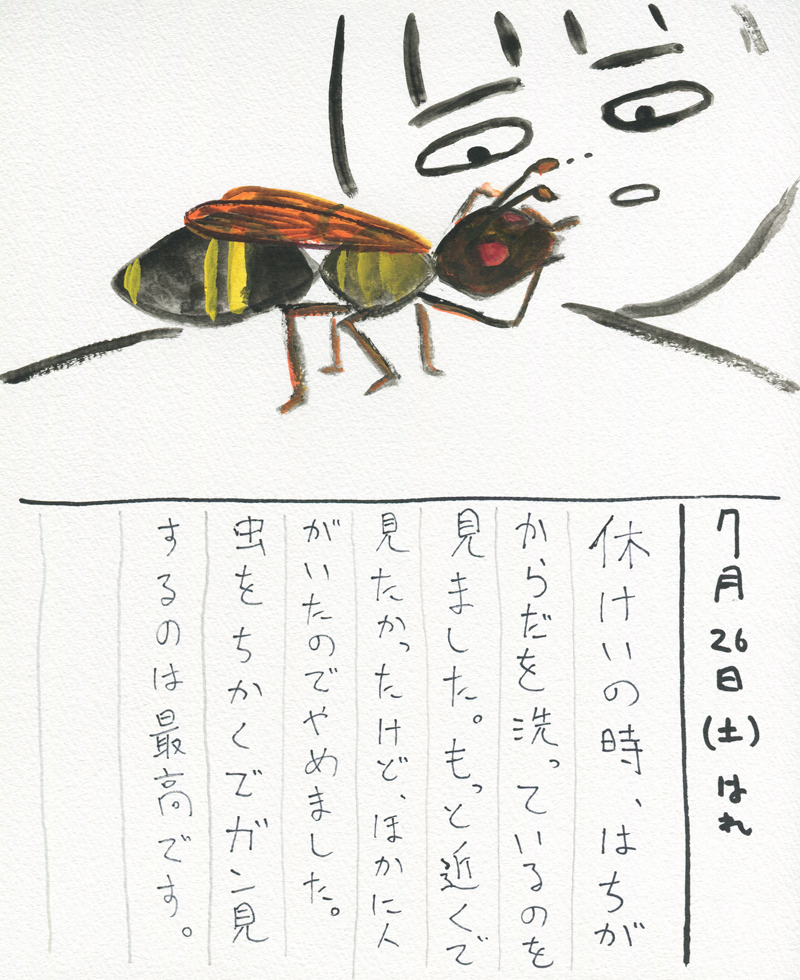 7月26日(土)はれ
休けいの時、はちが
からだを洗っているのを
見ました。もっと近くで
見たかったけど、ほかに人
がいたのでやめました。
虫をちかくでガン見
するのは最高です。